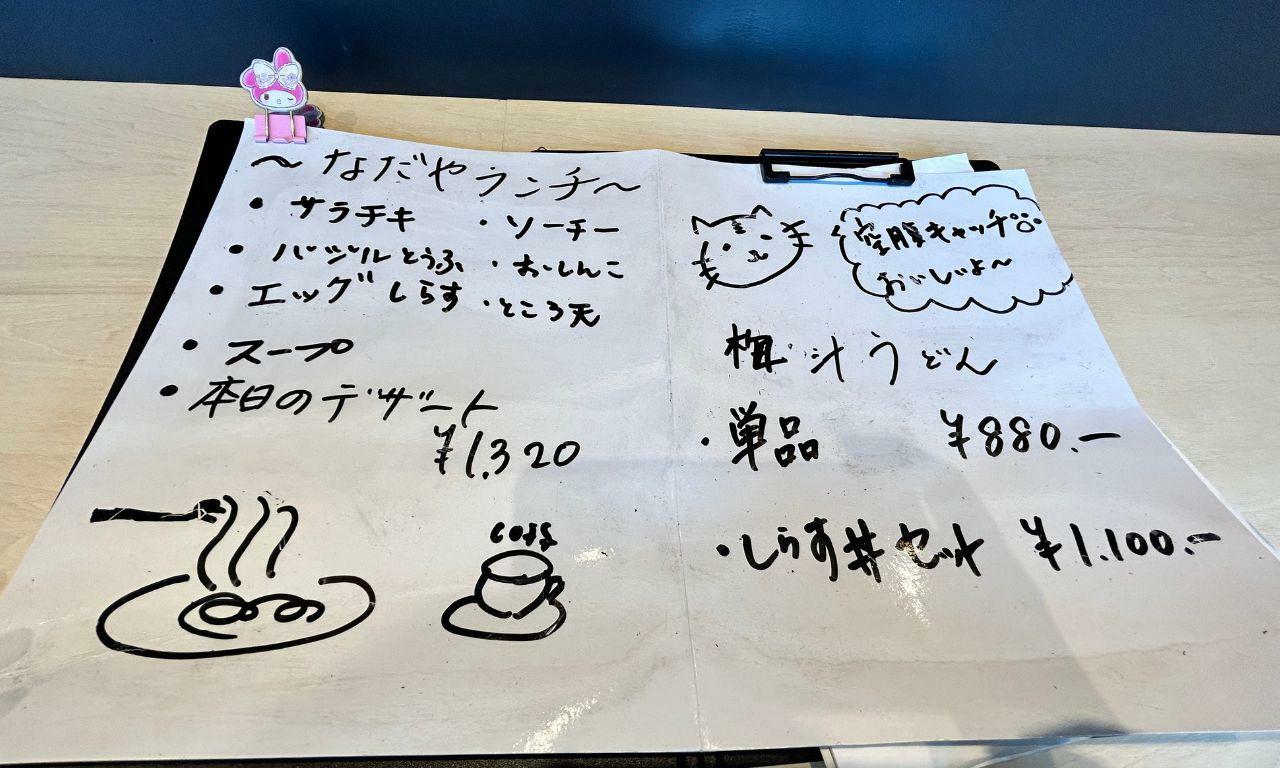 ～なだやランチ～
・サラチキ ・ソーチー
・バジルとうふ ・おしんこ
・エッグしらす ・ところ天
・スープ
・本日のデザート
¥1,320
空腹キャッチ
おいしいよ～
梅汁うどん
・単品 ¥880.－
・しらす丼セット ¥1.100.－